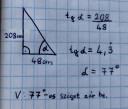 208cm
α
48cm
tg α = 208/48
tg α = 4,3
α = 77°
V: 77°-os szöget zár be.